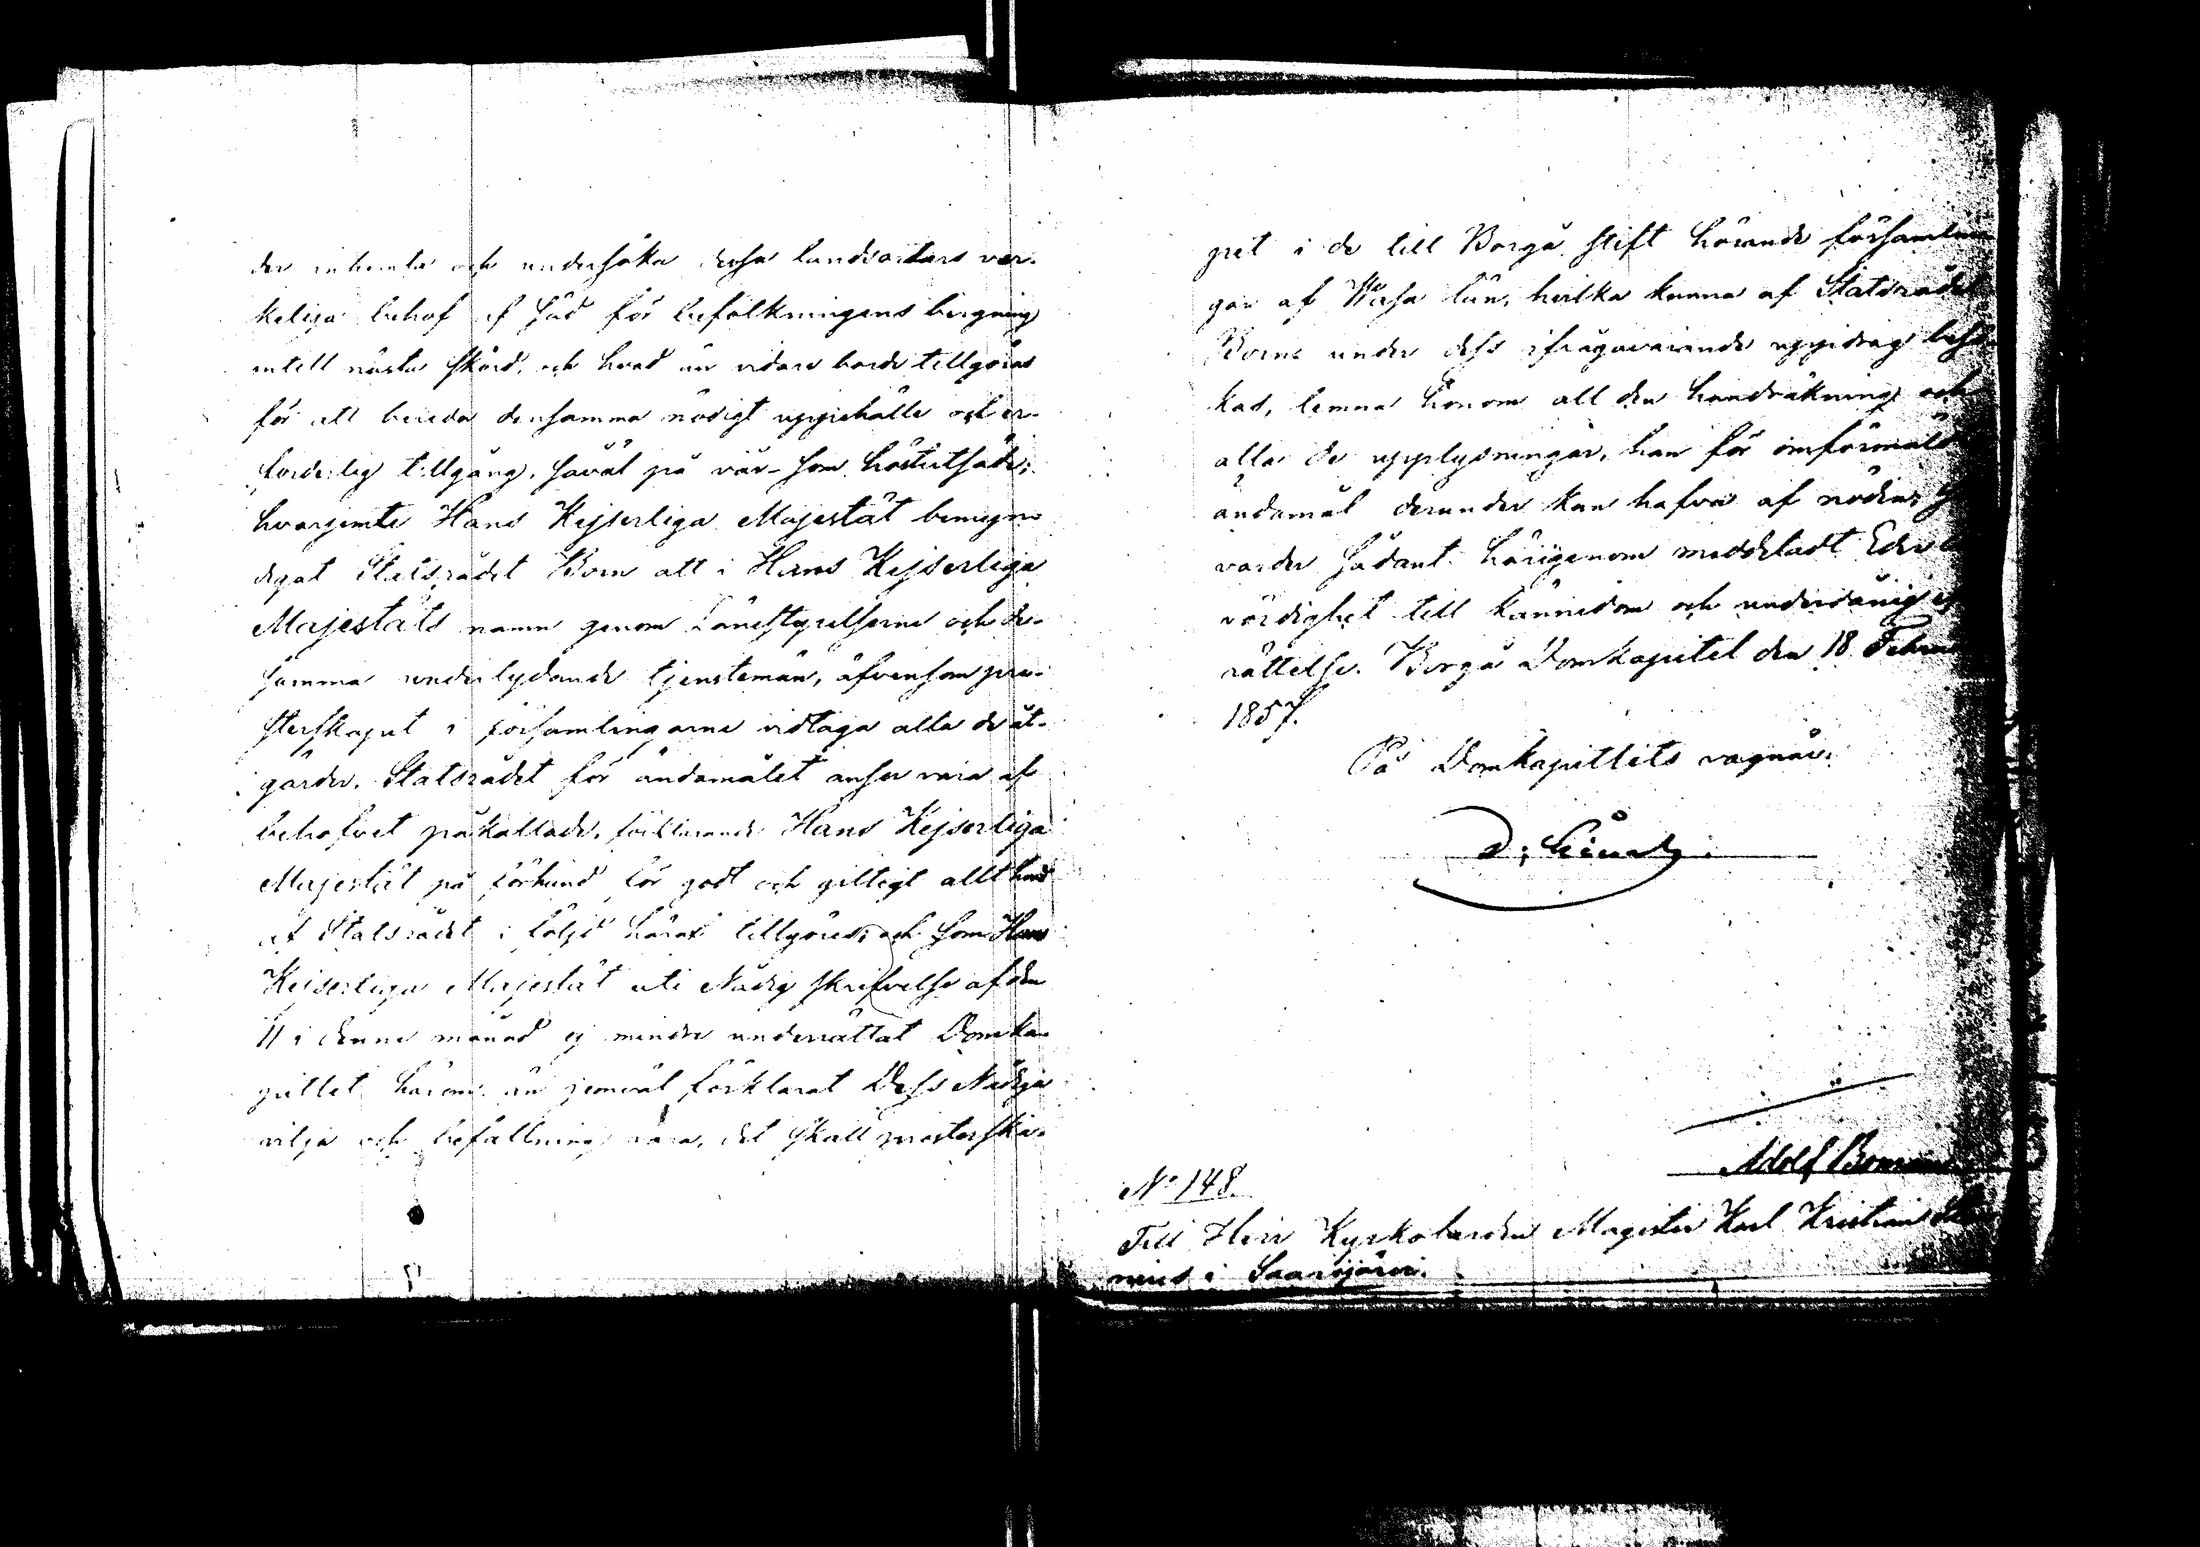 der inhemta och undersöka dessa landsortars ver-
keliga behof af säd för befolkningens bergning
intill nästa skörd, och hvad än vidare borde tillgöras
för att bereda densamma nödigt uppehälle och er-
forderlig tillgång, såväl på vår- som höstutsäde;
hvarjemte Hans Kejserliga Majestät bemyn-
digat Statsrådet Born att i Hans Kejserliga
Majestäts namn genom Länestyrelserne och de-
samma underlydande tjenstemän, äfvensom pre-
sterskapet i församlingarne vidtaga alla de åt-
gärder, Statsrådet för ändamålet anser vara af
behofvet påkallade, förklarande Hans Kejserliga
Majestät på förhand för godt och giltigt allt hvad
af Statsrådet i följd häraf tillgöres; och som Hans
Kejserliga Majestät uti Nådig skrifvelse af den
11 i denne månad ej mindre underrättat Domka-
pitlet härom, än jemväl förklarat Dess Nådiga
vilja och befallning vara, det skall presterska-
pet i de till Borgå stift hörande församlin
gar af Wasa län, hvilka kunna af Statsrådet
Born under dess ifrågavarande uppdrag besö-
kas, lemna honom all den handräkning och
alla de upplysningar, han för omförmält
ändamål derunder kan hafva af nöden;
varder sådant härigenom meddeladt Eder
vördighet till kännedom och underdånig
rättelse. Borgå Domkapitel den 18 Febru
1857.
På Domkapitlets vägnar:
Adolf Boman
No 148.
Till Herr Kyrkoherden Magister Karl Kristian
nius i Saarijärvi.